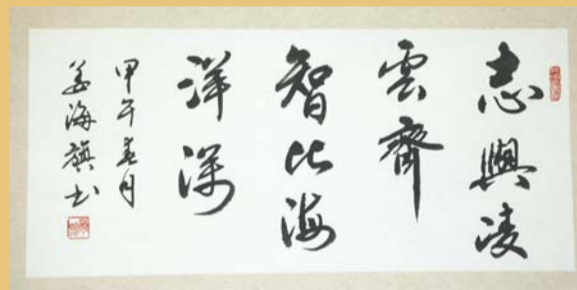 志與凌
雲齊
智比海
洋深
甲午春月
姜海旗书